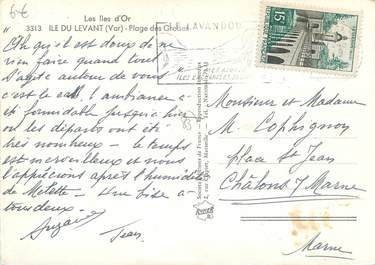 6€
Les Iles d'Or
3313 ILE DU LEVANT (Var) - Plage des Grottes
LAVANDOU
15F
Oh qu'il est doux de ne
rien faire quand tout
s'agite autour de vous
c'est le cas, l'ambiance a
été formidable jusqu'à hier
ou les départs ont été
très nombreux - le temps
est merveilleux et nous
l'apprécions après l'humidité
de Metette - Une bise a
tous deux -
Suzanne
Jean
Monsieur et Madame
M. Cophignon
place St Jean
Châlons s/ Marne
Marne
83